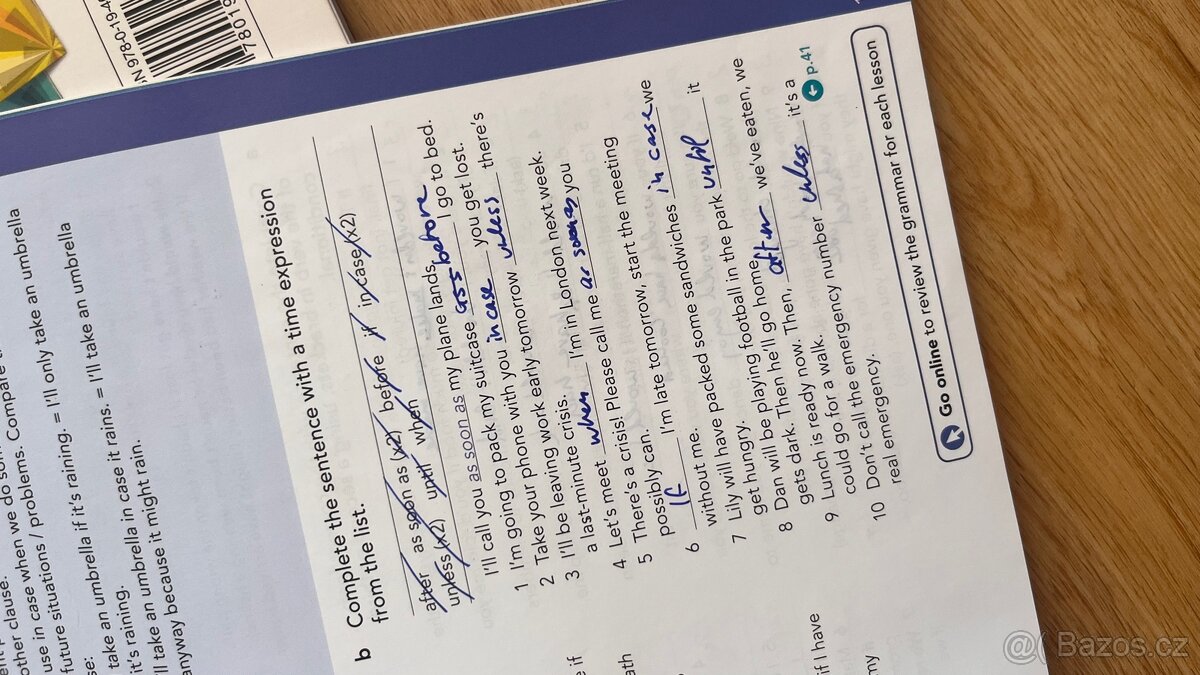 other clause.
use in case when we do som
future situations / problems. Compare
se:
take an umbrella if it's raining. = I'll only take an umbrella
it's raining.
'll take an umbrella in case it rains. = I'll take an umbrella
anyway because it might rain.
b Complete the sentence with a time expression
from the list.
after as soon as (x2) before if in case (x2)
unless (x2) until when
I'll call you as soon as my plane lands.
1 I'm going to pack my suitcase before I go to bed.
2 Take your phone with you in case you get lost.
3 I'll be leaving work early tomorrow unless there's
a last-minute crisis.
4 Let's meet when I'm in London next week.
5 There's a crisis! Please call me as soon as you
possibly can.
6 If I'm late tomorrow, start the meeting
without me.
7 Lily will have packed some sandwiches in case we
get hungry.
8 Dan will be playing football in the park until it
gets dark. Then he'll go home.
9 Lunch is ready now. Then, after we've eaten, we
could go for a walk.
10 Don't call the emergency number unless it's a
real emergency.
p.41
Go online to review the grammar for each lesson
e if
ath
if I have
my
978-0-19-4
Bazos.cz